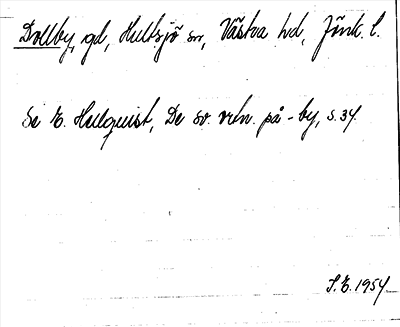 Dollby, gd, Hultsjö sn, Västra hd, Jönk. l.
Se E. Hellquist, De sv. ortn. på -by, s. 34.
S.E. 1954